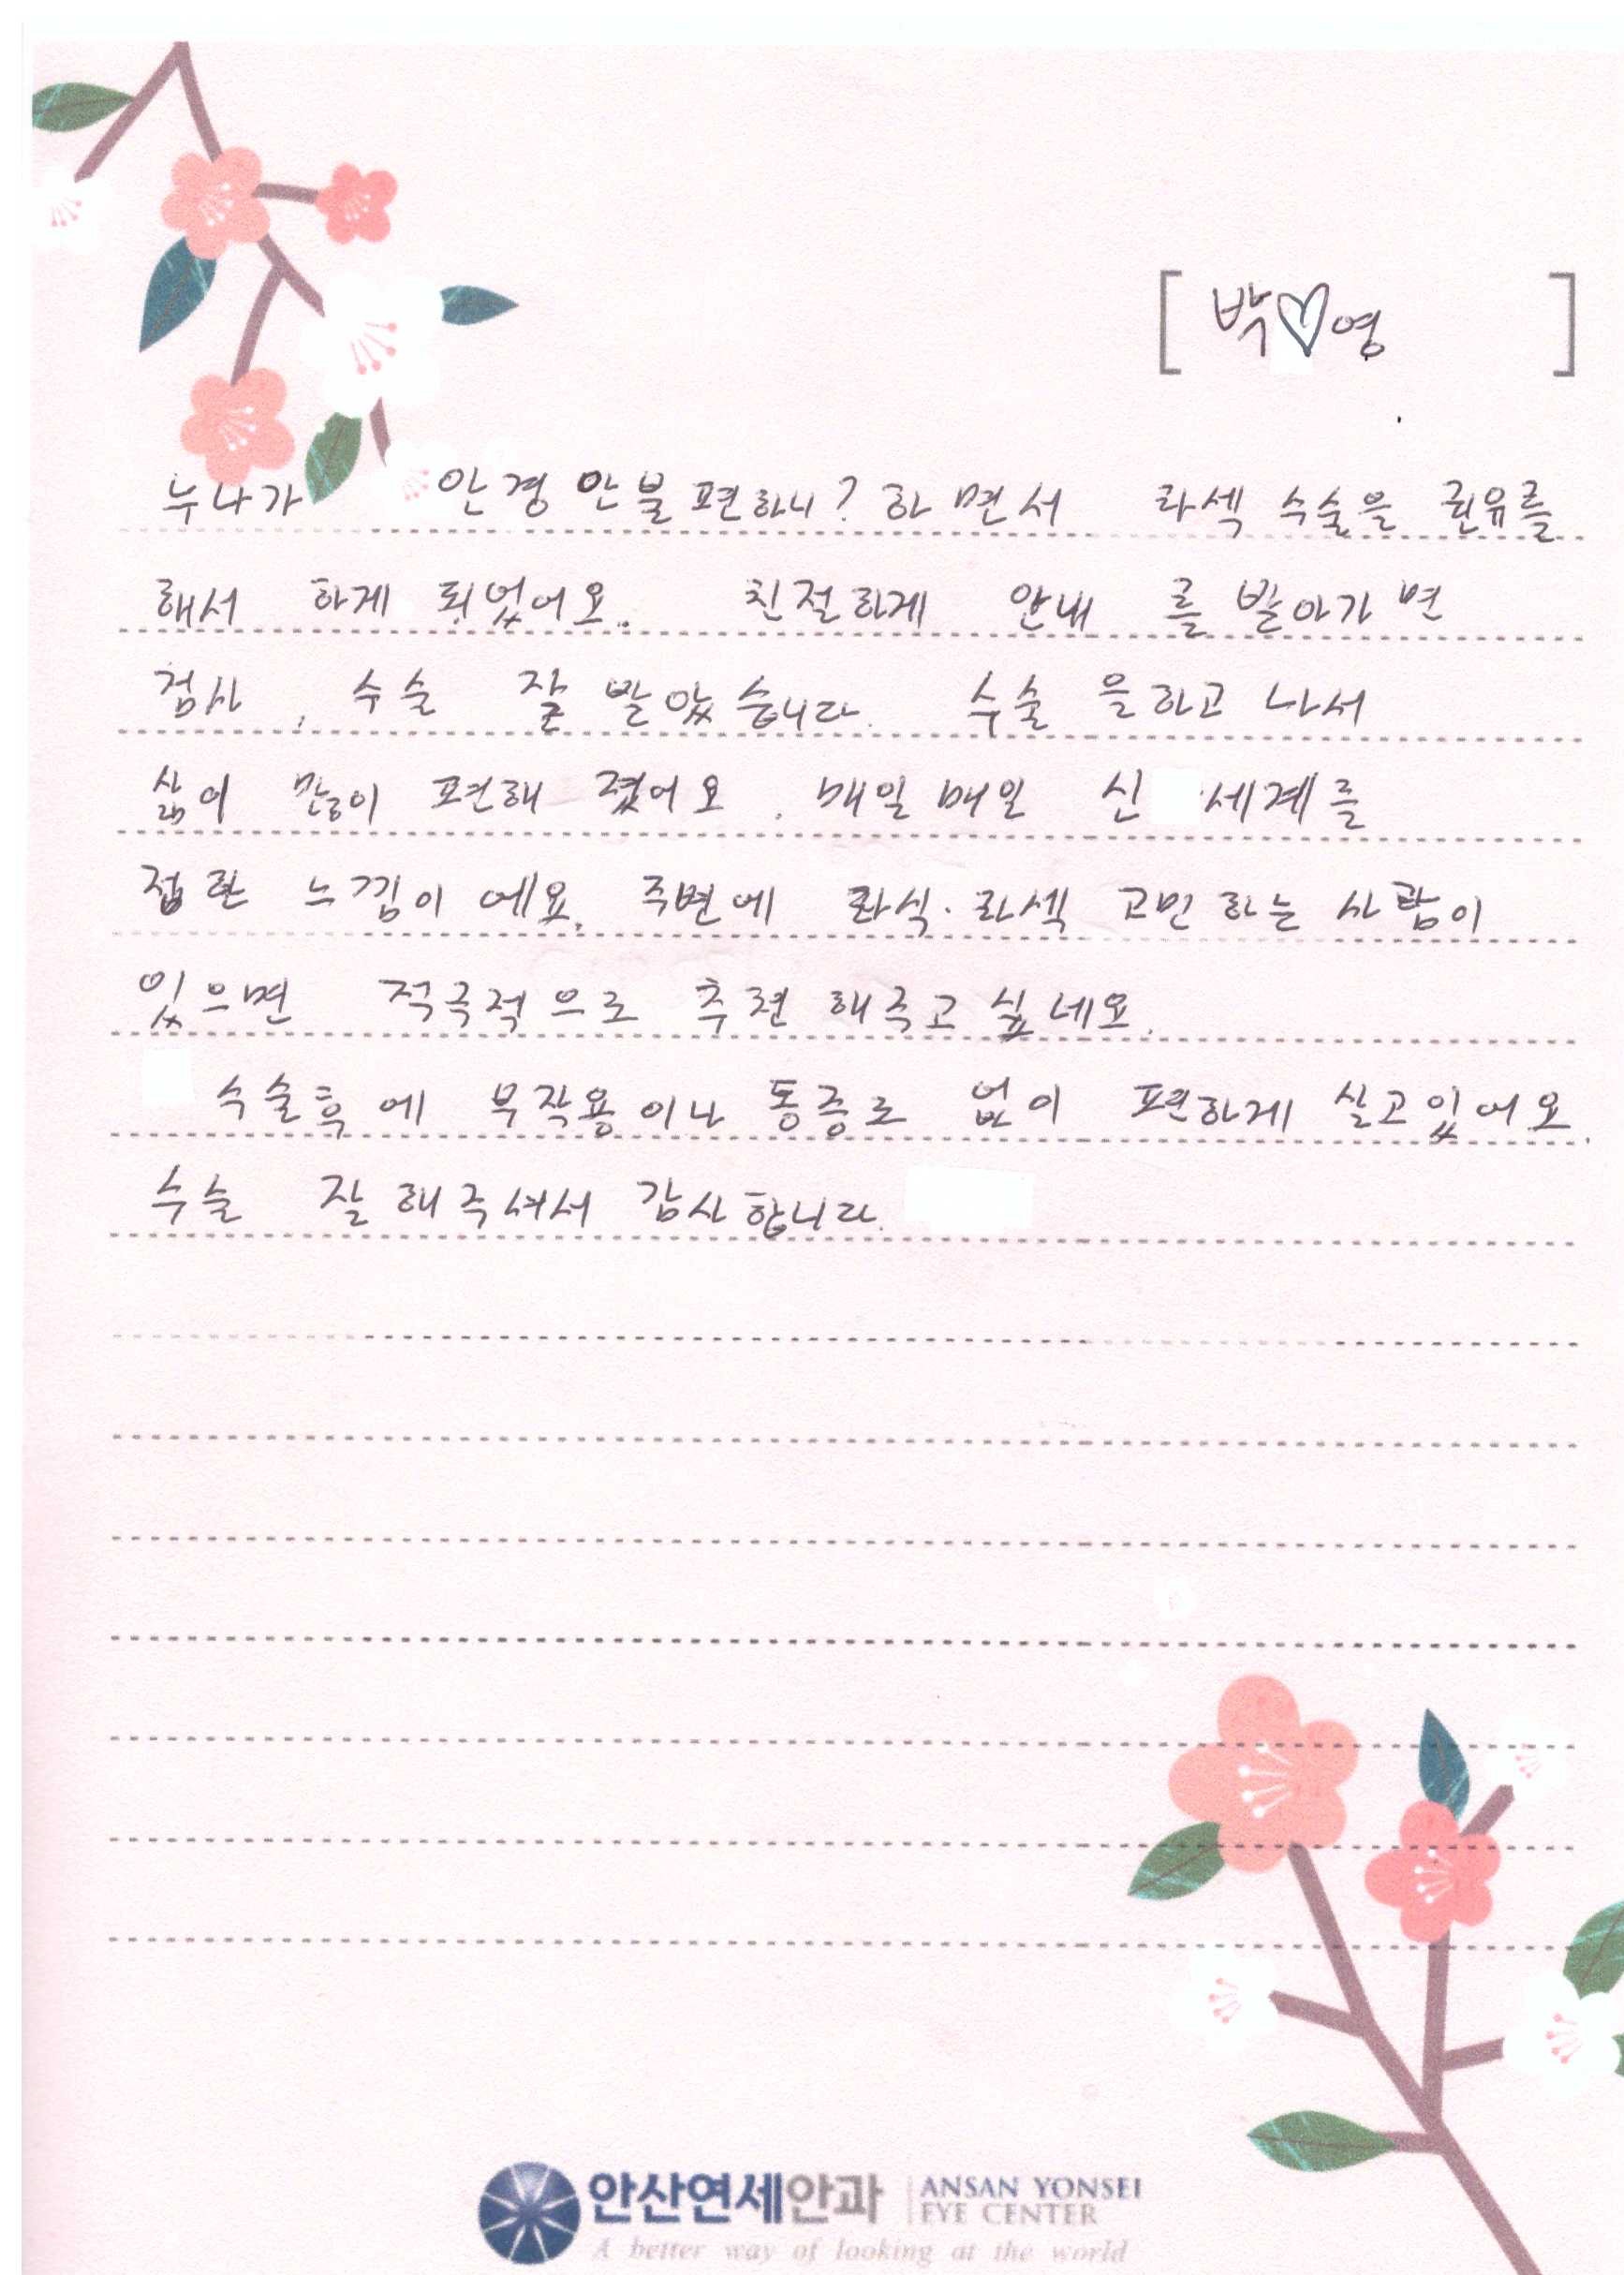 [ 박♡영 ]
누나가 안경 안불편하니? 하면서 라섹 수술을 권유를
해서 하게 되었어요. 친절하게 안내를 받아가면
검사, 수술 잘 받았습니다. 수술을하고 나서
삶이 많이 편해졌어요. 매일매일 신세계를
접한 느낌이에요. 주변에 라식·라섹 고민하는 사람이
있으면 적극적으로 추천해주고 싶네요.
수술후에 부작용이나 통증도 없이 편하게 살고있어요.
수술 잘해주셔서 감사합니다.
안산연세안과 ANSAN YONSEI
EYE CENTER
A better way of looking at the world